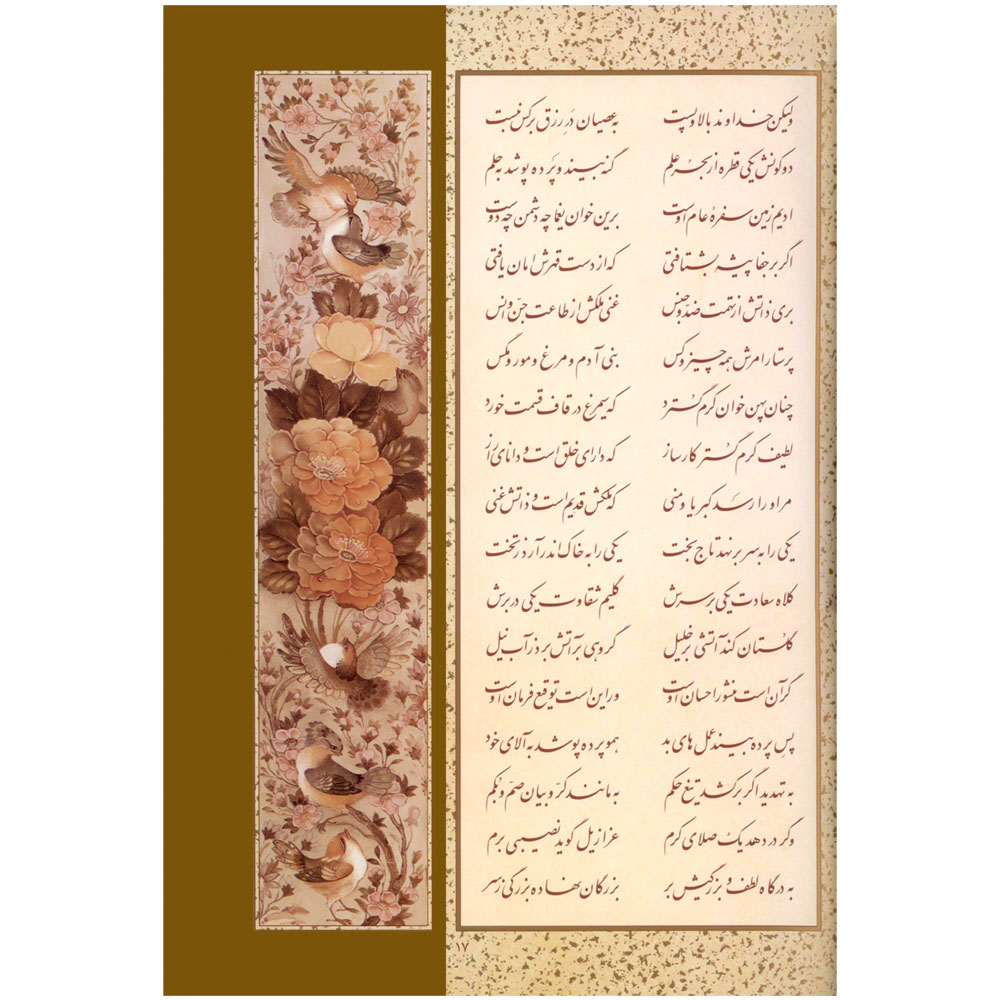 ولیکن خداوند بالا و پست به عصیان درِ رزق بر کس نبست
دو کونش یکی قطره از بحر علم گنه بیند و پرده پوشد به حلم
ادیم زمین سفرهٔ عام اوست برین خوان یغما چه دشمن چه دوست
اگر بر جفا پیشه بشتافتی که از دست قهرش امان یافتی
بری ذاتش از تهمت ضد و جنس غنی ملکش از طاعت جن و انس
پرستار امرش همه چیز و کس بنی آدم و مرغ و مور و مگس
چنان پهن خوان کرم گسترد که سیمرغ در قاف قسمت خورد
لطیف کرم گستر کارساز که دارای خلق است و دانای راز
مر او را رسد کبریا و منی که ملکش قدیم است و ذاتش غنی
یکی را به سر بر نهد تاج بخت یکی را به خاک اندر آرد ز تخت
کلاه سعادت یکی بر سرش گلیم شقاوت یکی در برش
گلستان کند آتشی بر خلیل گروهی بر آتش برد ز آب نیل
گر آن است منشور احسان اوست ور این است توقیع فرمان اوست
پسِ پرده بیند عمل های بد همو پرده پوشد به آلای خود
به تهدید اگر بر کشد تیغ حکم به مانند کرّوبیان صمّ و بکم
وگر در دهد یک صلای کرم عزازیل گوید نصیبی برم
به درگاه لطف و بزرگیش بر بزرگان نهاده بزرگی ز سر
۱۷